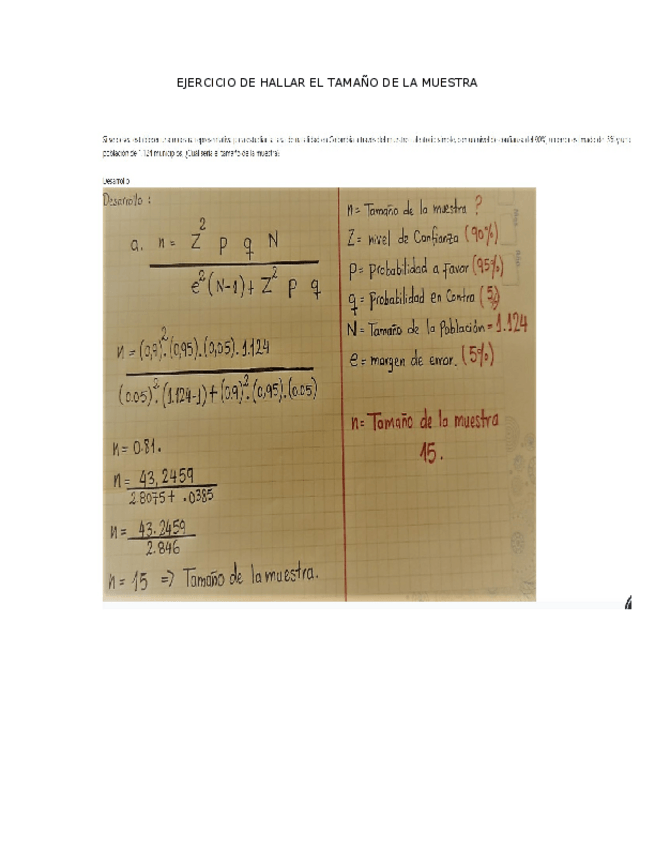 EJERCICIO DE HALLAR EL TAMAÑO DE LA MUESTRA
población de 1.124 municipios. ¿Cuál sería el tamaño de la muestra?
Desarrollo
Desarrollo :
a. n = Z² p q N
e²(N-1)+ Z² p q
n = (0,9)².(0,95).(0,05).1.124
(0.05)².(1.124-1)+(0.9)².(0,95).(0.05)
n = 0.81.
n = 43,2459
2.8075+ .0385
n = 43.2459
2.846
n = 15 => Tamaño de la muestra.
n = Tamaño de la muestra ?
Z = nivel de Confianza (90%)
p = probabilidad a favor (95%)
q = probabilidad en Contra (5%)
N = Tamaño de la Población = 1.124
e = margen de error. (5%)
n = Tamaño de la muestra
15.